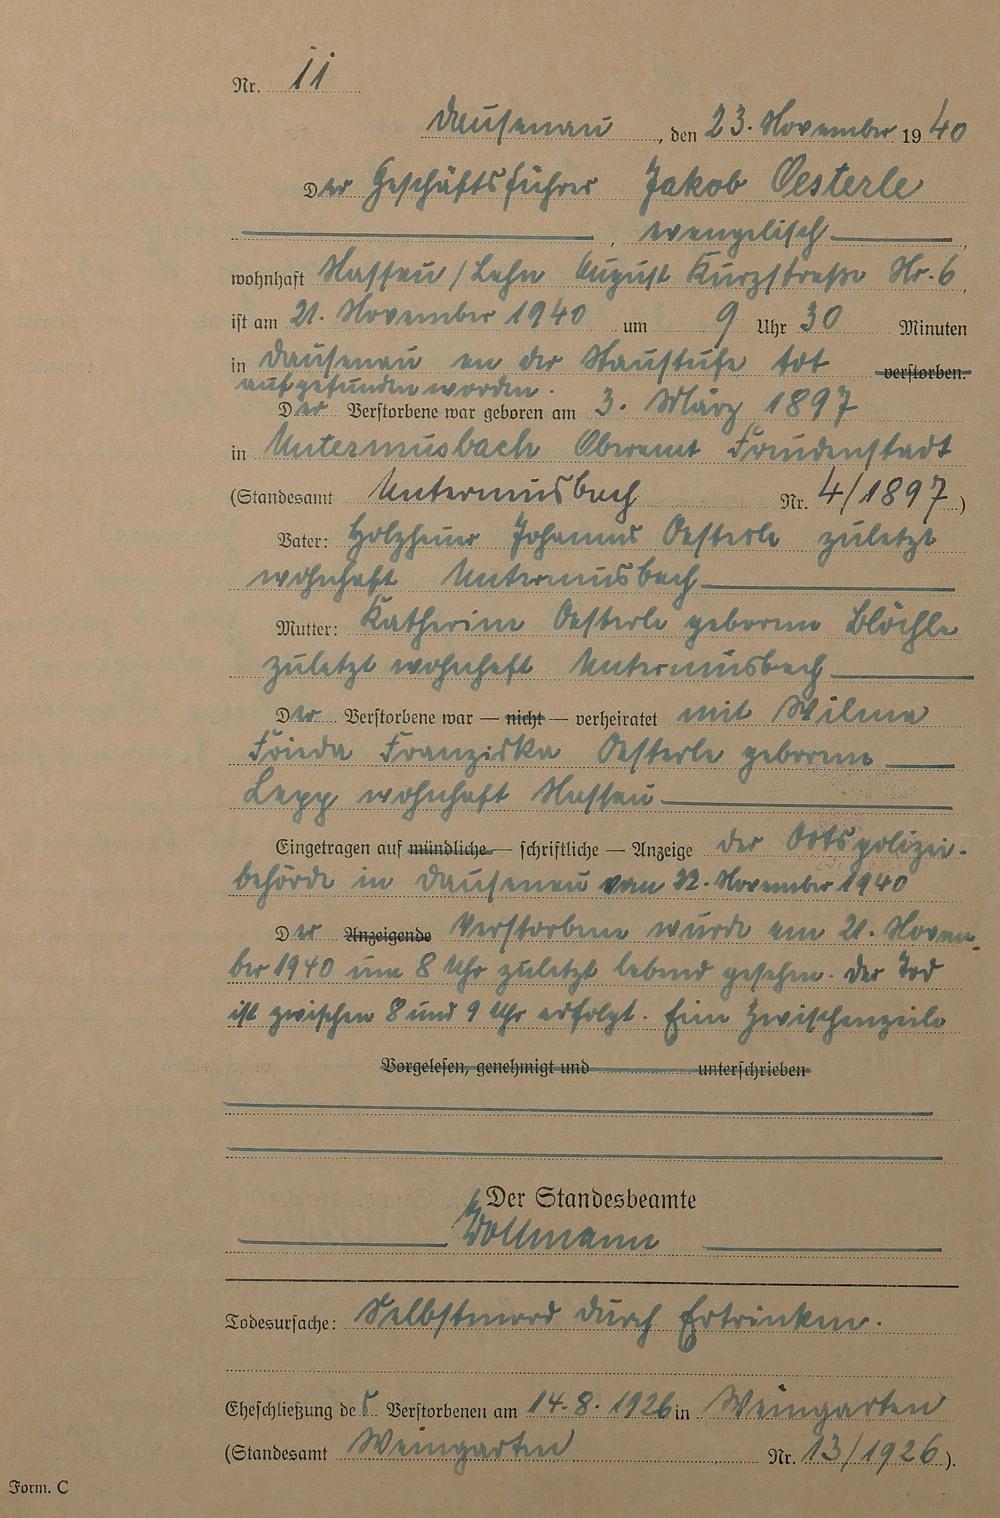 Nr. 11
Dausenau, den 23. November 1940
Der Geschäftsführer Jakob Oesterle
, evangelisch,
wohnhaft Nassau/Lahn August Kurzstraße Nr. 6,
ist am 21. November 1940 um 9 Uhr 30 Minuten
in Dausenau an der Staustufe tot verstorben.
aufgefunden worden.
Der Verstorbene war geboren am 3. März 1897
in Untermusbach Oberamt Freudenstadt
(Standesamt Untermusbach Nr. 4/1897)
Vater: Holzhauer Johannes Oesterle zuletzt
wohnhaft Untermusbach
Mutter: Katharina Oesterle geborene Blöchle
zuletzt wohnhaft Untermusbach
Der Verstorbene war — nicht — verheiratet mit Wilma
Frieda Franziska Oesterle geborene
Lepp wohnhaft Nassau
Eingetragen auf mündliche — schriftliche — Anzeige der Ortspolizei-
behörde in Dausenau vom 22. November 1940
Der Anzeigende Verstorbene wurde am 21. Novem-
ber 1940 um 8 Uhr zuletzt lebend gesehen. Der Tod
ist zwischen 8 und 9 Uhr erfolgt. Eine Zwischenzeile
Vorgelesen, genehmigt und unterschrieben
Der Standesbeamte
Wollmann
Todesursache: Selbstmord durch Ertrinken.
Eheschließung des Verstorbenen am 14.8.1926 in Weingarten
(Standesamt Weingarten Nr. 13/1926).
Form. C